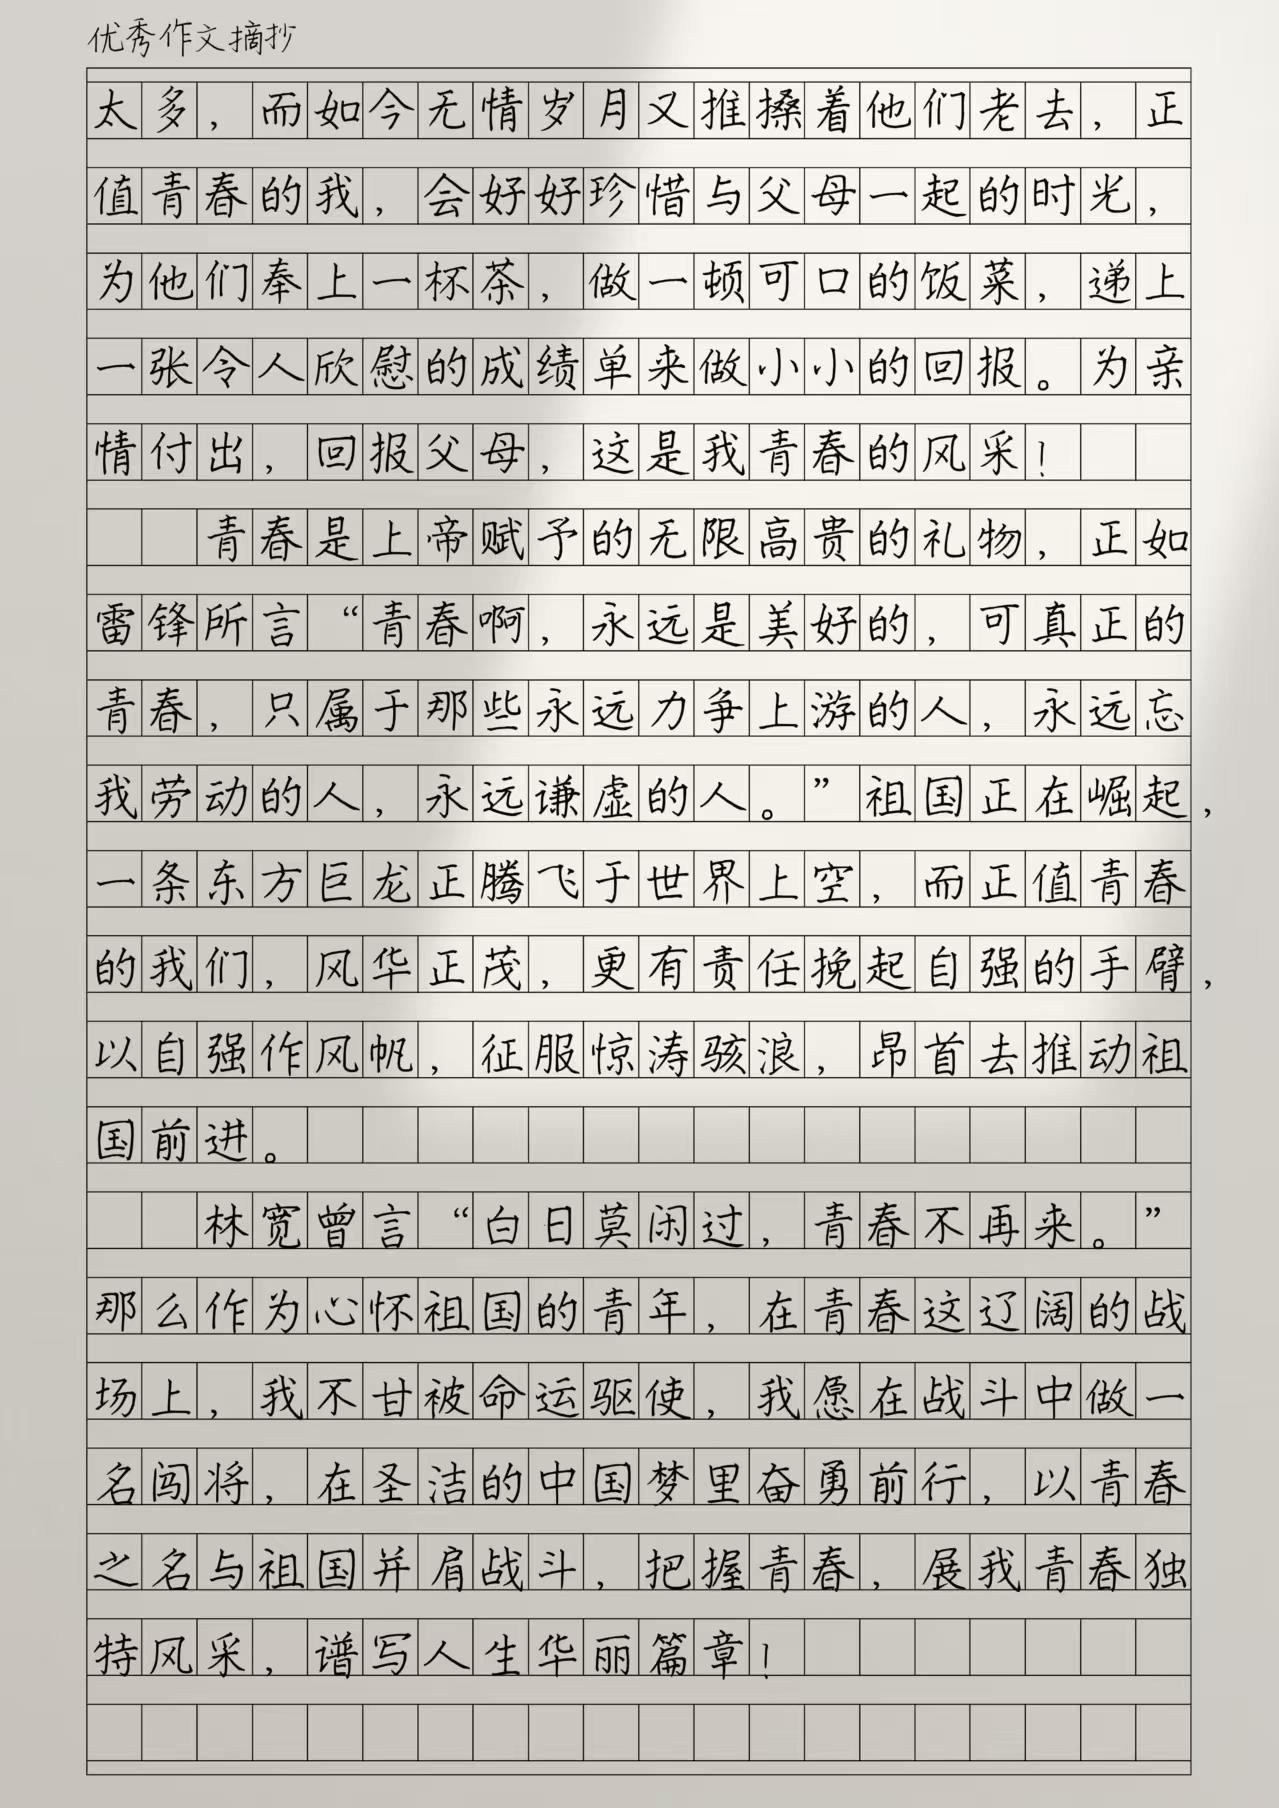 优秀作文摘抄
太多，而如今无情岁月又推搡着他们老去，正
值青春的我，会好好珍惜与父母一起的时光，
为他们奉上一杯茶，做一顿可口的饭菜，递上
一张令人欣慰的成绩单来做小小的回报。为亲
情付出，回报父母，这是我青春的风采！
青春是上帝赋予的无限高贵的礼物，正如
雷锋所言“青春啊，永远是美好的，可真正的
青春，只属于那些永远力争上游的人，永远忘
我劳动的人，永远谦虚的人。”祖国正在崛起，
一条东方巨龙正腾飞于世界上空，而正值青春
的我们，风华正茂，更有责任挽起自强的手臂，
以自强作风帆，征服惊涛骇浪，昂首去推动祖
国前进。
林宽曾言“白日莫闲过，青春不再来。”
那么作为心怀祖国的青年，在青春这辽阔的战
场上，我不甘被命运驱使，我愿在战斗中做一
名闯将，在圣洁的中国梦里奋勇前行，以青春
之名与祖国并肩战斗，把握青春，展我青春独
特风采，谱写人生华丽篇章！